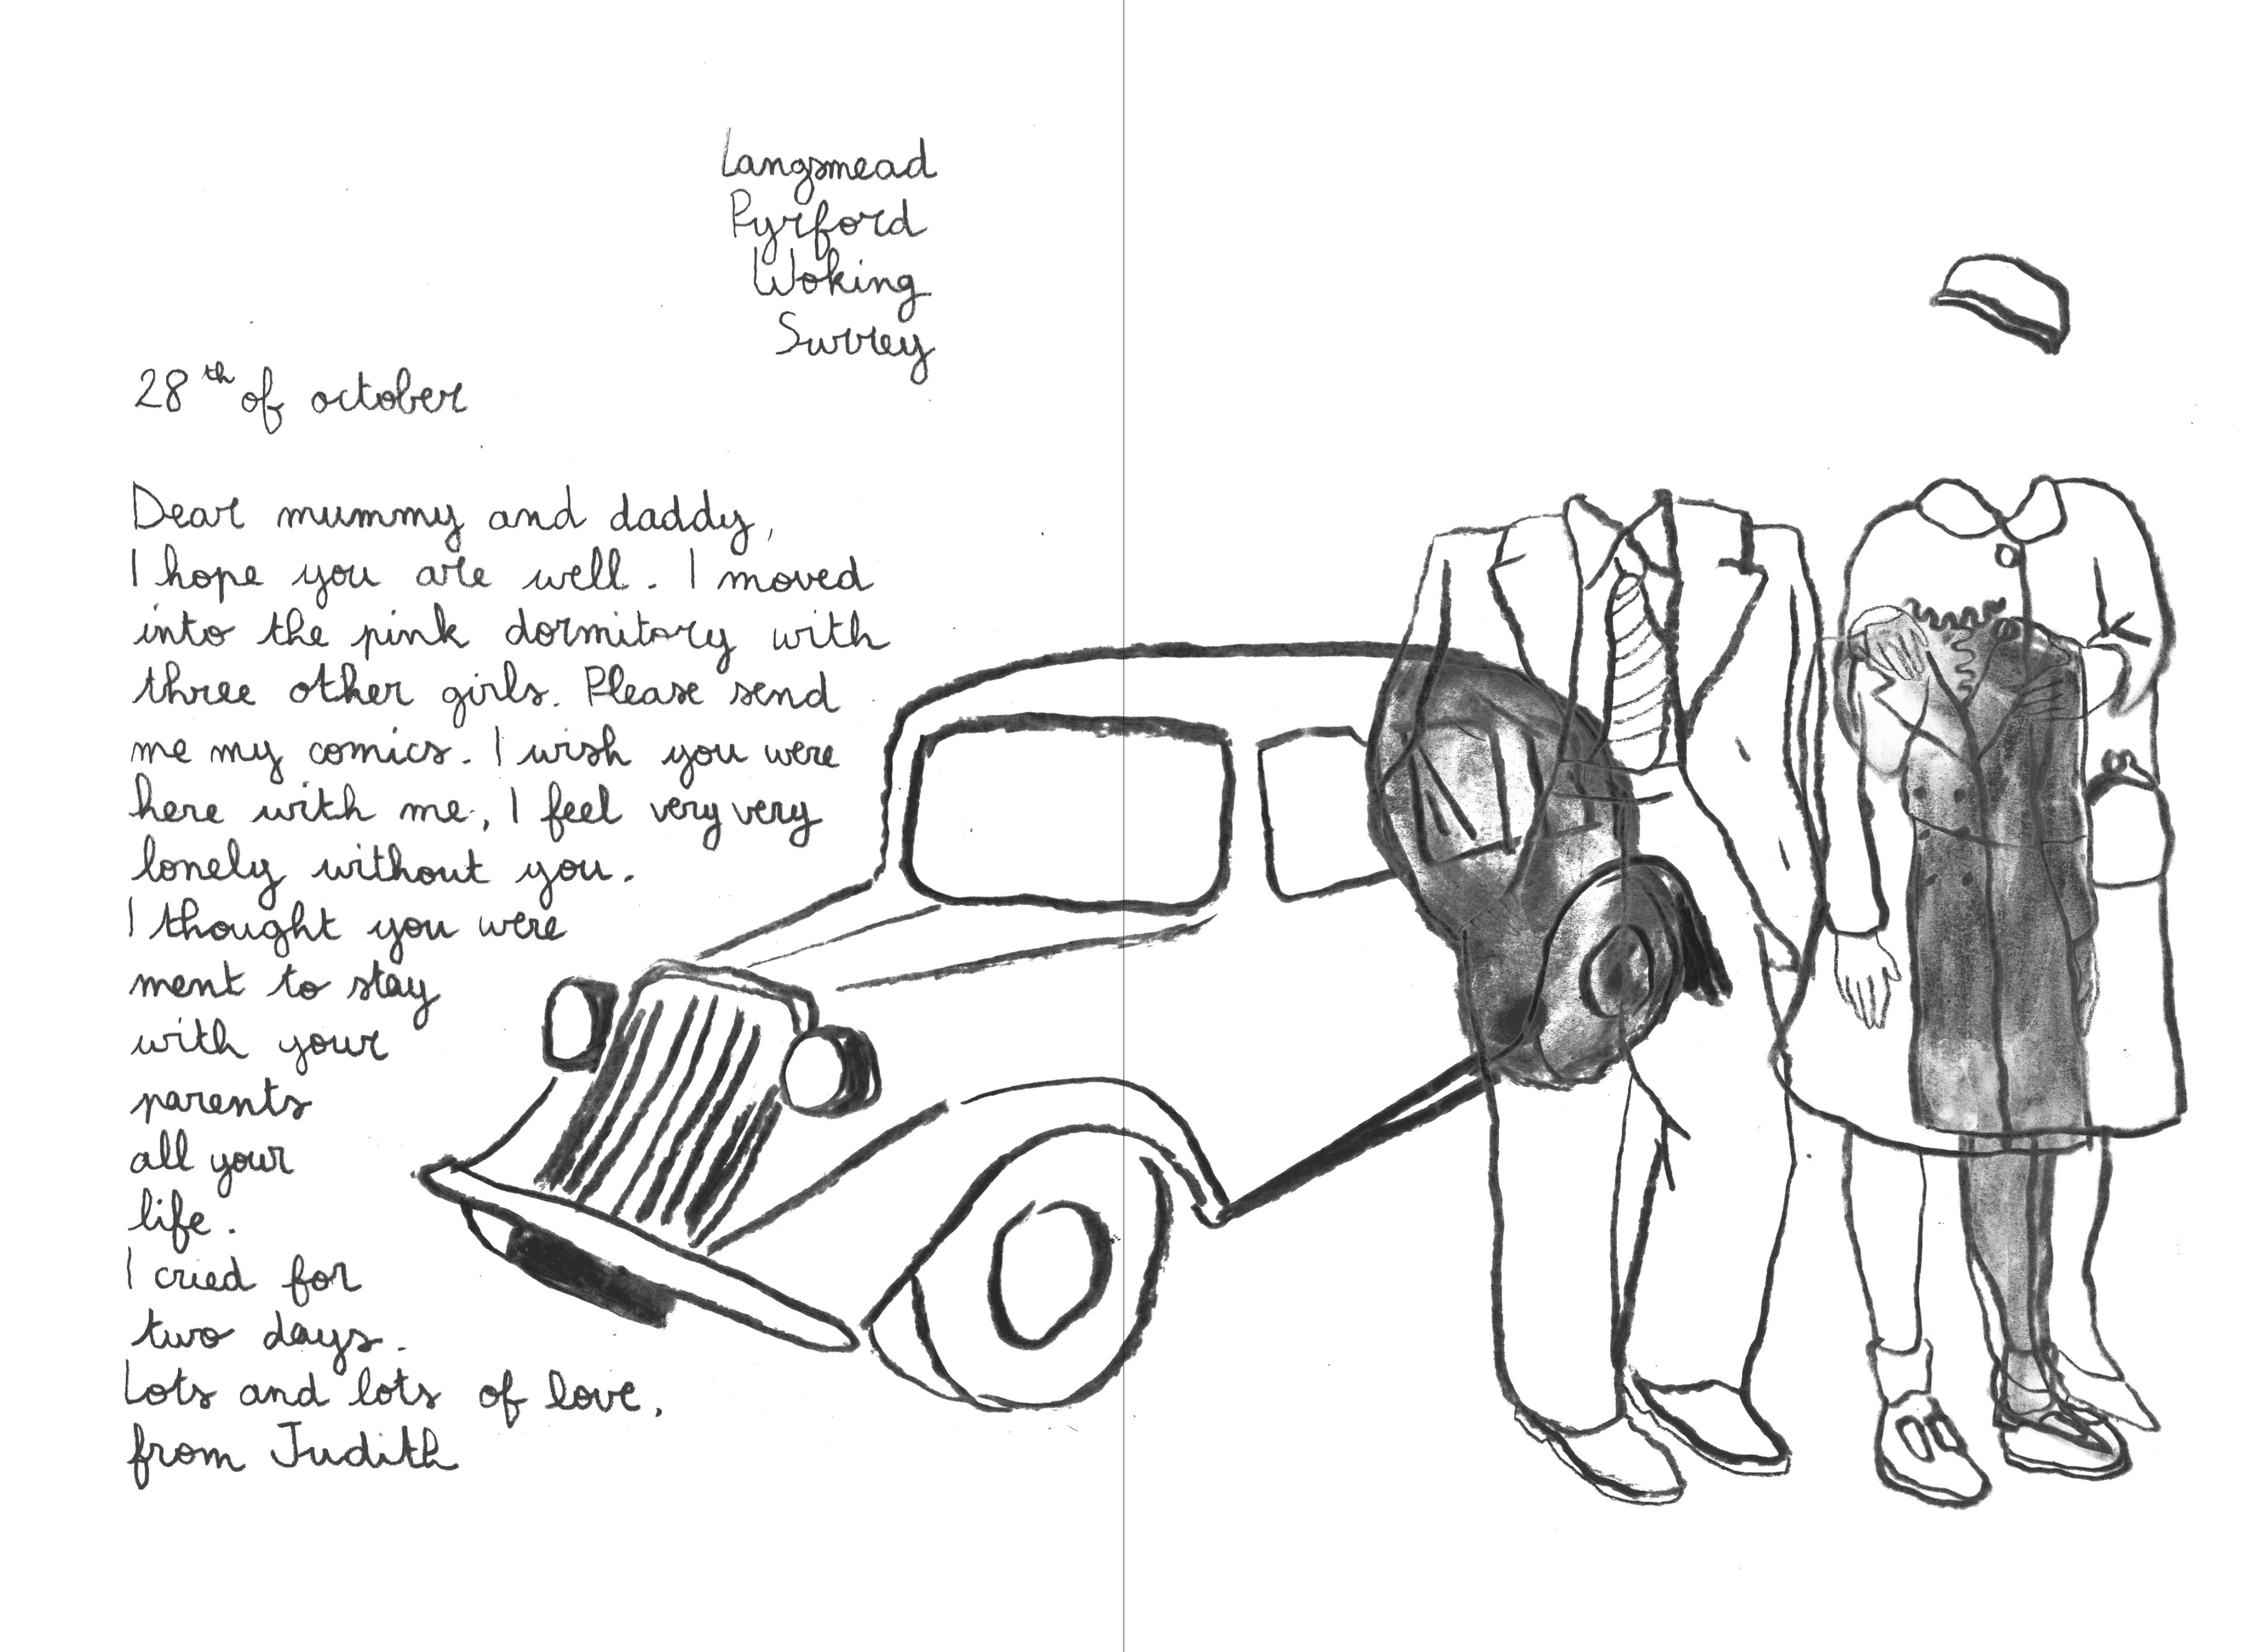 Langsmead
Pyrford
Woking
Surrey
28th of october
Dear mummy and daddy,
I hope you are well. I moved
into the pink dormitory with
three other girls. Please send
me my comics. I wish you were
here with me, I feel very very
lonely without you.
I thought you were
ment to stay
with your
parents
all your
life.
I cried for
two days.
Lots and lots of love,
from Judith